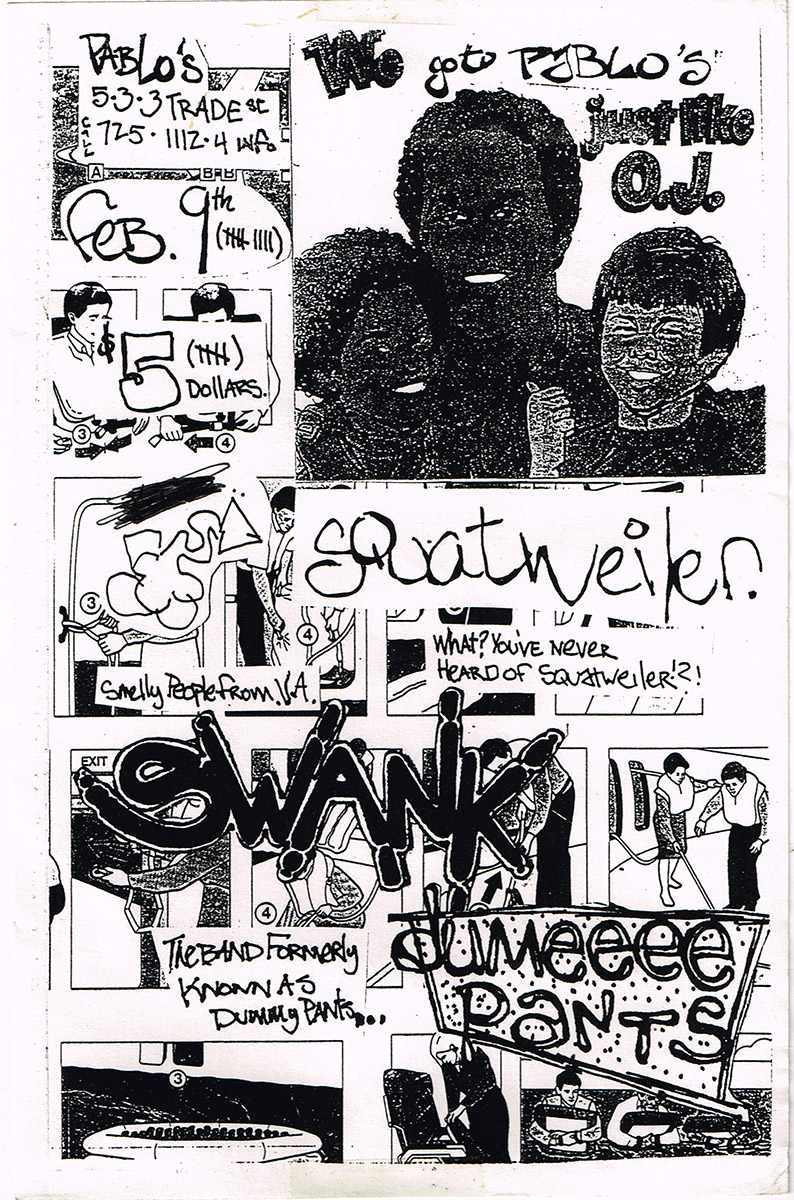 PABLO'S
5·3·3 TRADE ST
CALL 725·1112·4 info
A
B-B
FEB. 9th
We go to PABLO'S
just like
O.J.
$5
DOLLARS.
3
4
squatweiler.
3
4
WHAT? YOU'VE NEVER
HEARD OF SQUATWEILER!?!
Smelly People from V.A.
EXIT
SWANK
4
THE BAND FORMERLY
KNOWN AS
DUMMY PANTS...
dumeeee
PANTS
3